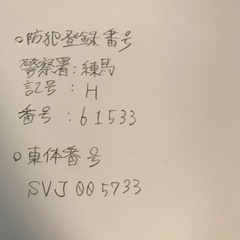 ○防犯登録番号
警察署:練馬
記号:H
番号:61533
○車体番号
SVJ005733